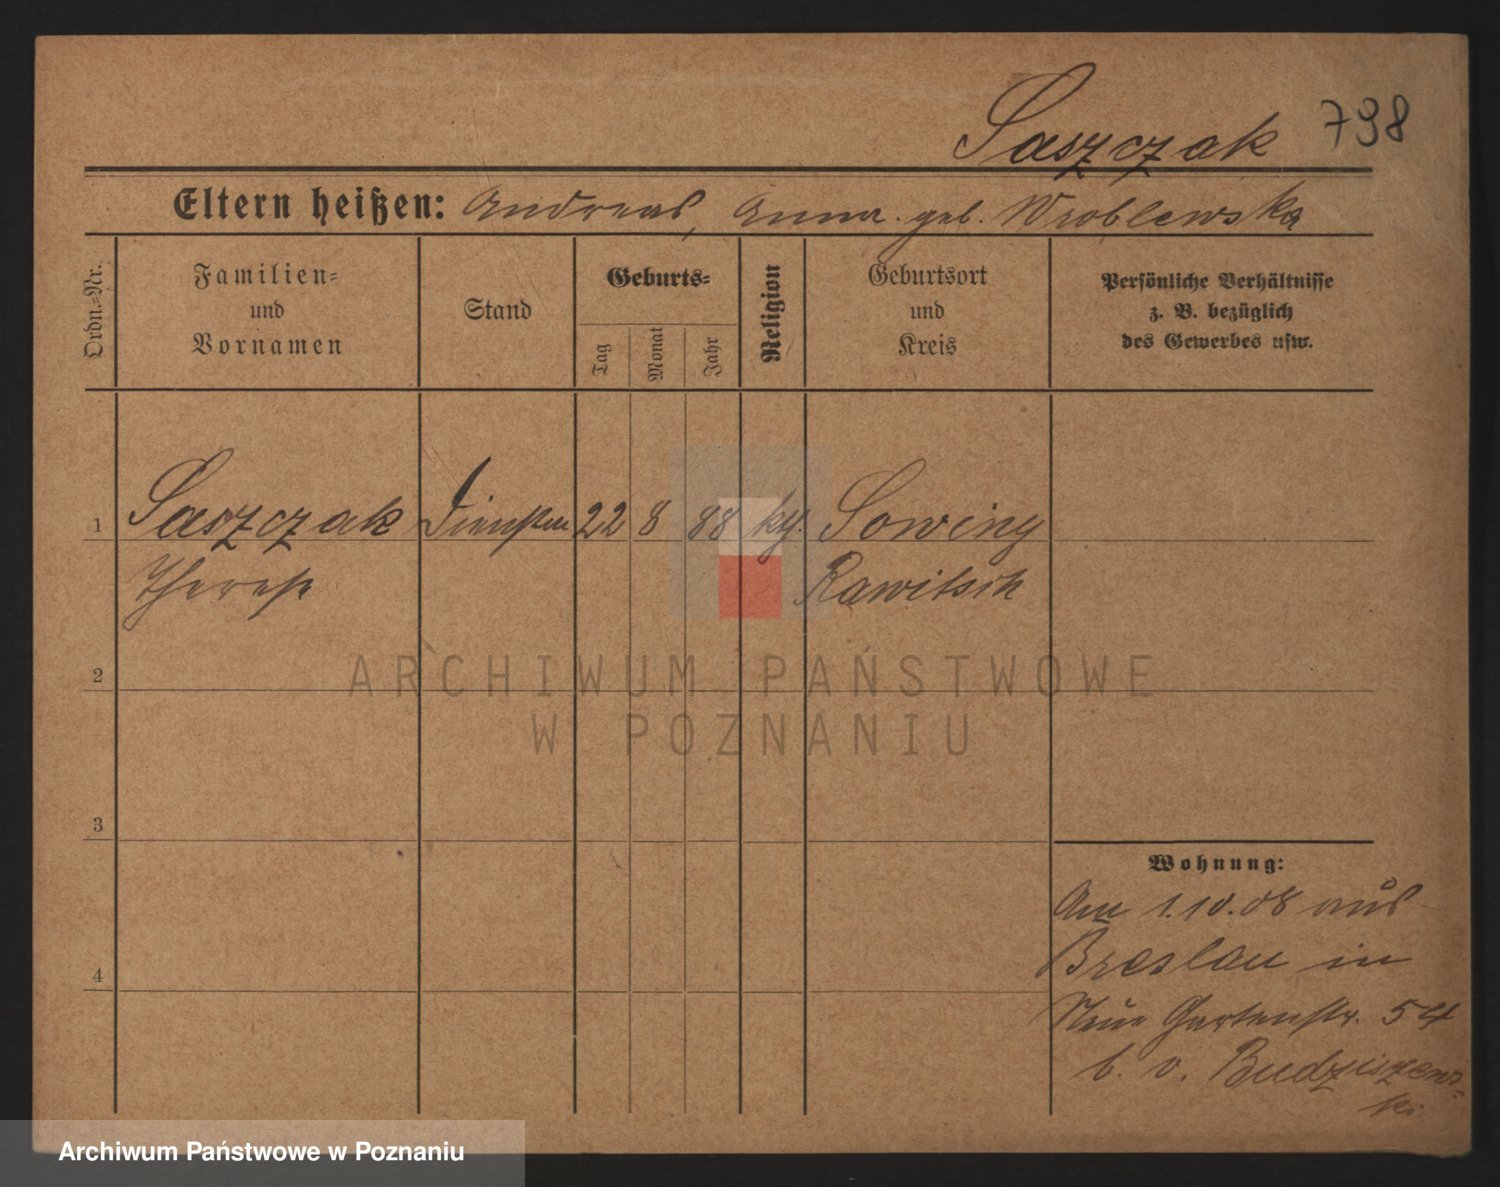 Saszczak 798
Eltern heißen: Andreas, Anna geb. Wroblewska
Ordn.-Nr.
Familien-
und
Vornamen
Stand
Geburts-
Tag
Monat
Jahr
Religion
Geburtsort
und
Kreis
Persönliche Verhältnisse
z. B. bezüglich
des Gewerbes usw.
1 Saszczak 22 8 88 Sowiny
Therese Rawitsch
2
3
4
ARCHIWUM PAŃSTWOWE
W POZNANIU
Wohnung:
Am 1.10.08 aus
Breslau in
Neue Gartenstr. 54
b. v. Budziszews-
ki
Archiwum Państwowe w Poznaniu